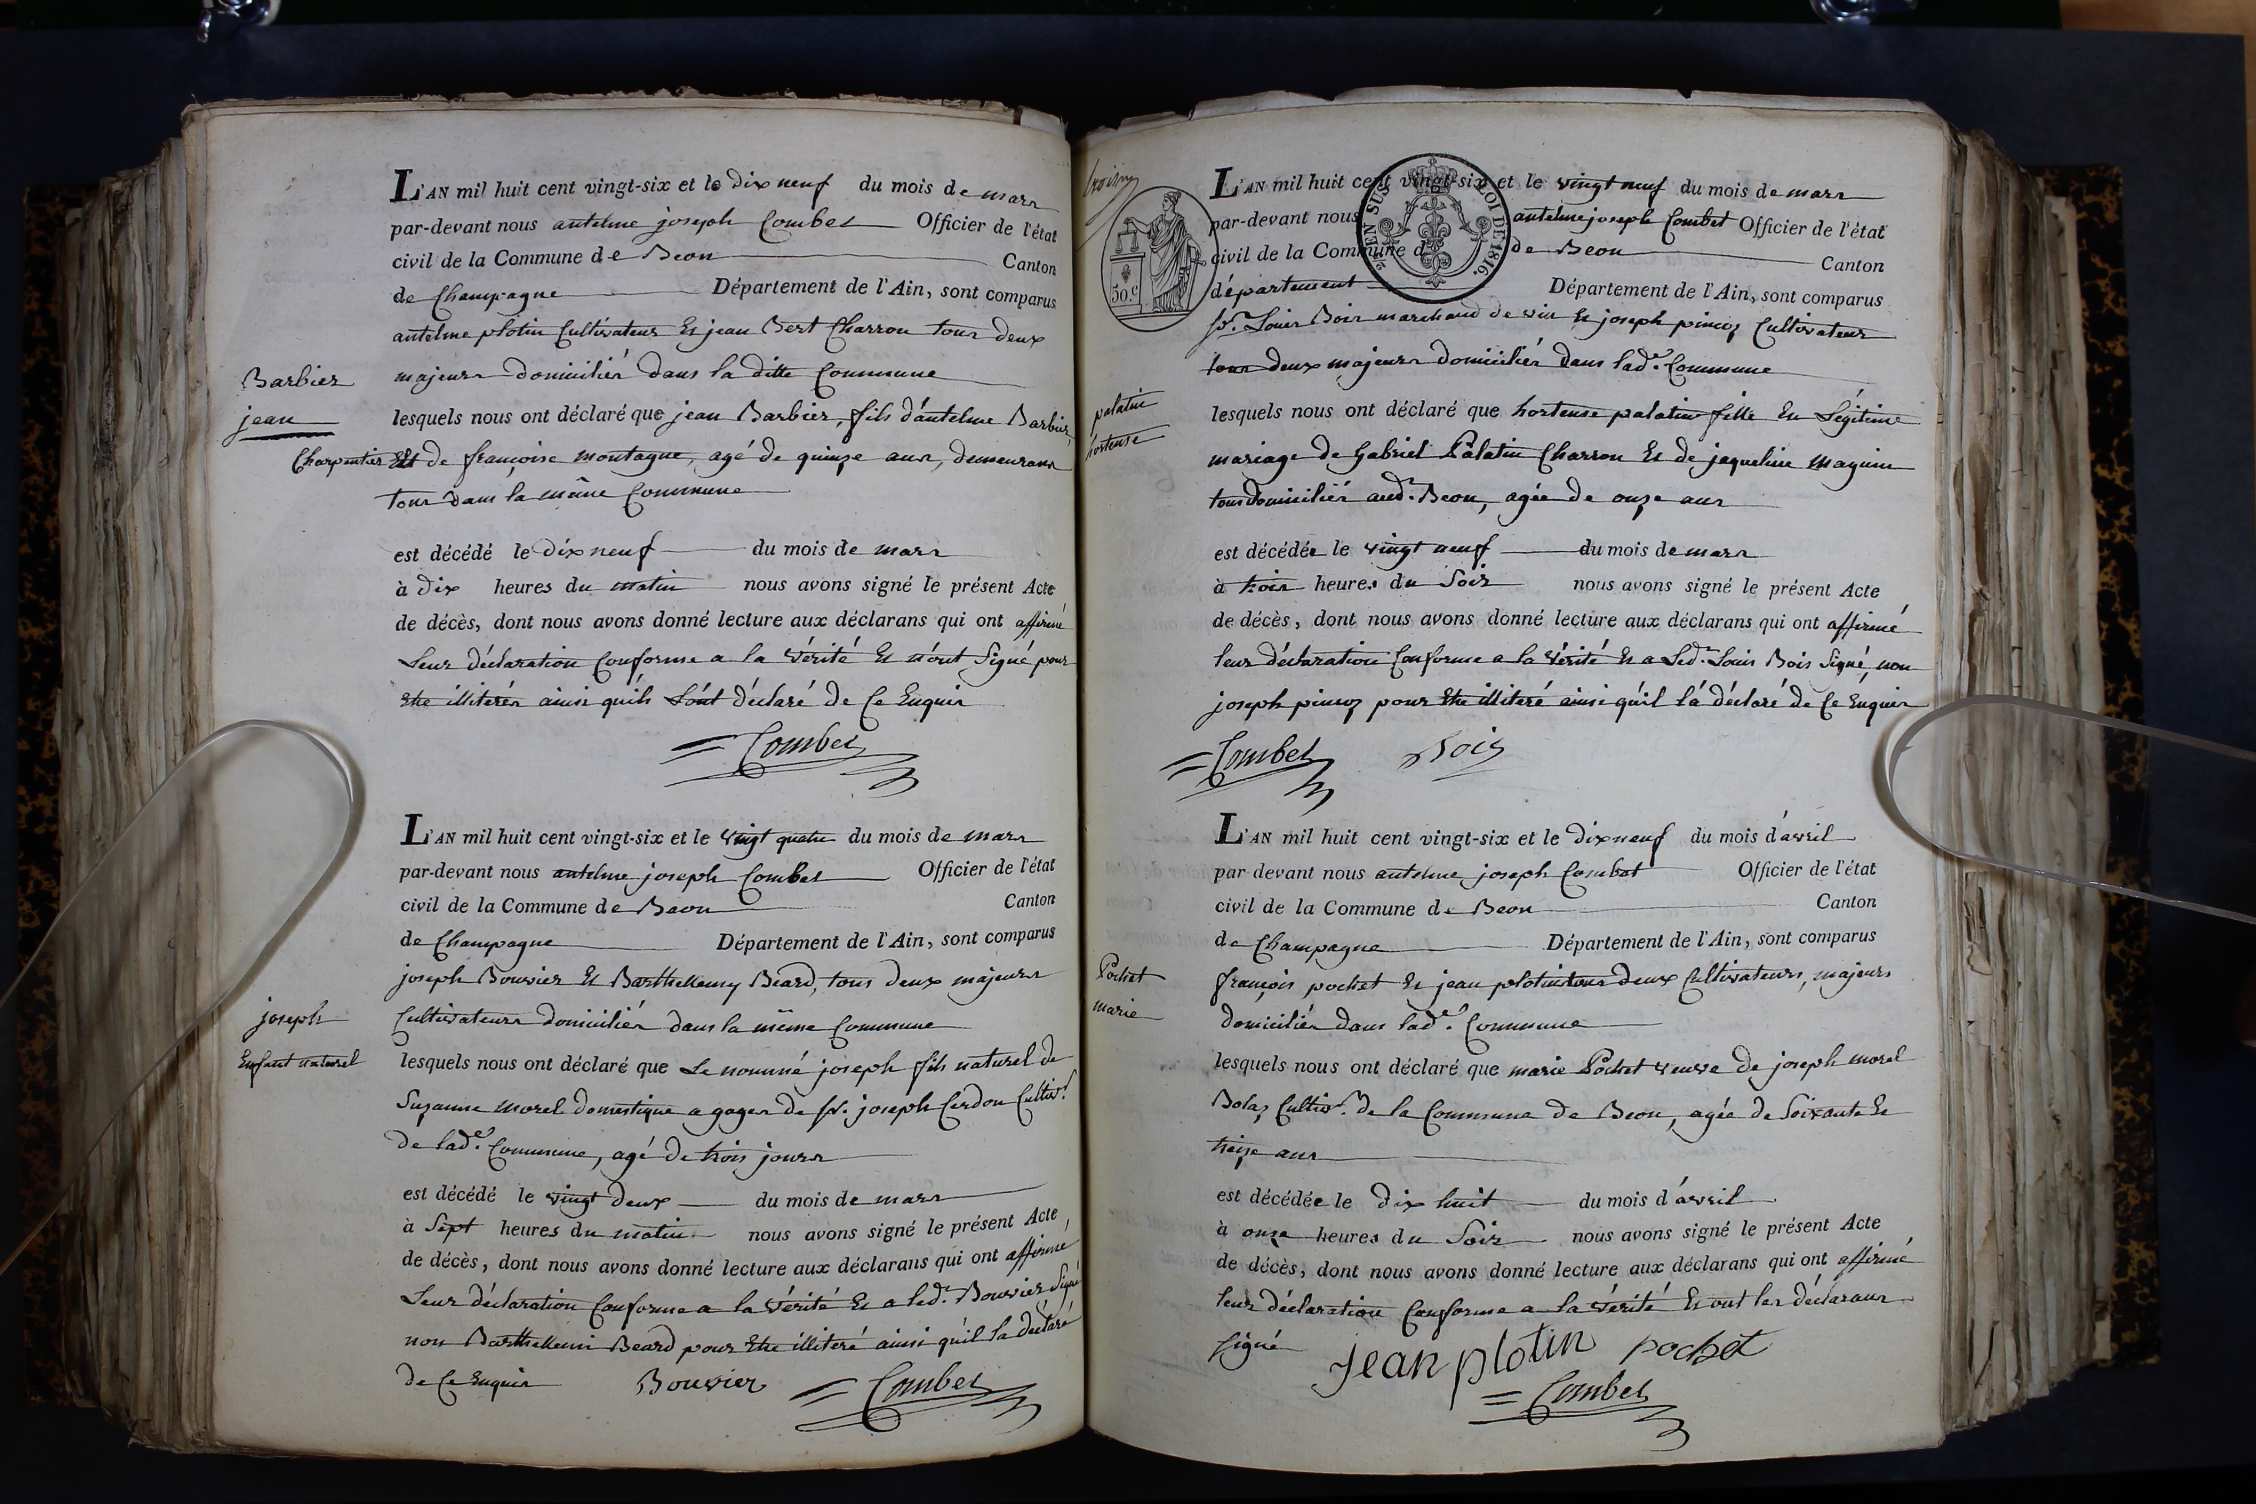 L'AN mil huit cent vingt-six et le dix neuf du mois de mars
par-devant nous antelme joseph Combet Officier de l'état
civil de la Commune de Beon Canton
de Champagne Département de l'Ain, sont comparus
antelme plotin Cultivateur Et jean Bert Charron tous deux
majeurs domiciliés dans la ditte Commune
Barbier
jean
lesquels nous ont déclaré que jean Barbier, fils d'antelme Barbier
Charpentier Et de françoise montagne, agé de quinze ans, demeurans
tous dans la même Commune
est décédé le dix neuf du mois de mars
à dix heures du matin nous avons signé le présent Acte
de décès, dont nous avons donné lecture aux déclarans qui ont affirmé
Leur déclaration Conforme a la vérité Et n'ont Signé pour
Etre illiterés ainsi qu'ils L'ont déclaré de Ce Enquis
Combet
L'AN mil huit cent vingt-six et le vingt quatre du mois de mars
par-devant nous antelme joseph Combet Officier de l'état
civil de la Commune de Beon Canton
de Champagne Département de l'Ain, sont comparus
joseph Bouvier Et Barthellemy Beard, tous deux majeurs
Cultivateurs domiciliés dans la même Commune
joseph
Enfant naturel
lesquels nous ont déclaré que Le nommé joseph fils naturel de
Suzanne morel domestique a gages de Sr. joseph Cerdon Cultivr.
de lade. Commune, agé de trois jours
est décédé le vingt deux du mois de mars
à Sept heures du matin nous avons signé le présent Acte
de décès, dont nous avons donné lecture aux déclarans qui ont affirmé
Leur déclaration Conforme a la vérité Et a led. Bouvier Signé
non Barthellemi Beard pour Etre illiteré ainsi qu'il la déclaré
de Ce Enquis Bouvier Combet
L'AN mil huit cent vingt-six et le vingt neuf du mois de mars
par-devant nous antelme joseph Combet Officier de l'état
civil de la Commune de de Beon Canton
département Département de l'Ain, sont comparus
EN SUS LOI DE 1816.
50.c
Sr. Louis Bois marchand de vin Et joseph pincoz Cultivateur
tous deux majeurs domiciliés dans lade. Commune
palatin
hortense
lesquels nous ont déclaré que hortense palatin fille En Légitime
mariage de Gabriel Palatin Charron Et de jaqueline maguin
tous domiciliés aud. Beon, agée de onze ans
est décédée le vingt neuf du mois de mars
à trois heures du Soir nous avons signé le présent Acte
de décès, dont nous avons donné lecture aux déclarans qui ont affirmé
leur déclaration Conforme a la vérité Et a Led. Louis Bois Signé, non
joseph pincoz pour Etre illiteré ainsi qu'il l'a déclaré de Ce Enquis
Combet Bois
L'AN mil huit cent vingt-six et le dix neuf du mois d'avril
par devant nous antelme joseph Combet Officier de l'état
civil de la Commune de Beon Canton
de Champagne Département de l'Ain, sont comparus
Pochet
marie
françois pochet Et jean plotin tous deux Cultivateurs, majeurs
domiciliés dans lade. Commune
lesquels nous ont déclaré que marie Pochet veuve de joseph morel
Bolaz Cultivr. de la Commune de Beon, agée de Soixante Et
treize ans
est décédée le dix huit du mois d'avril
à onze heures du Soir nous avons signé le présent Acte
de décès, dont nous avons donné lecture aux déclarans qui ont affirmé
leur déclaration Conforme a la vérité Et ont les déclarans
Signé jean plotin pochet
Combet